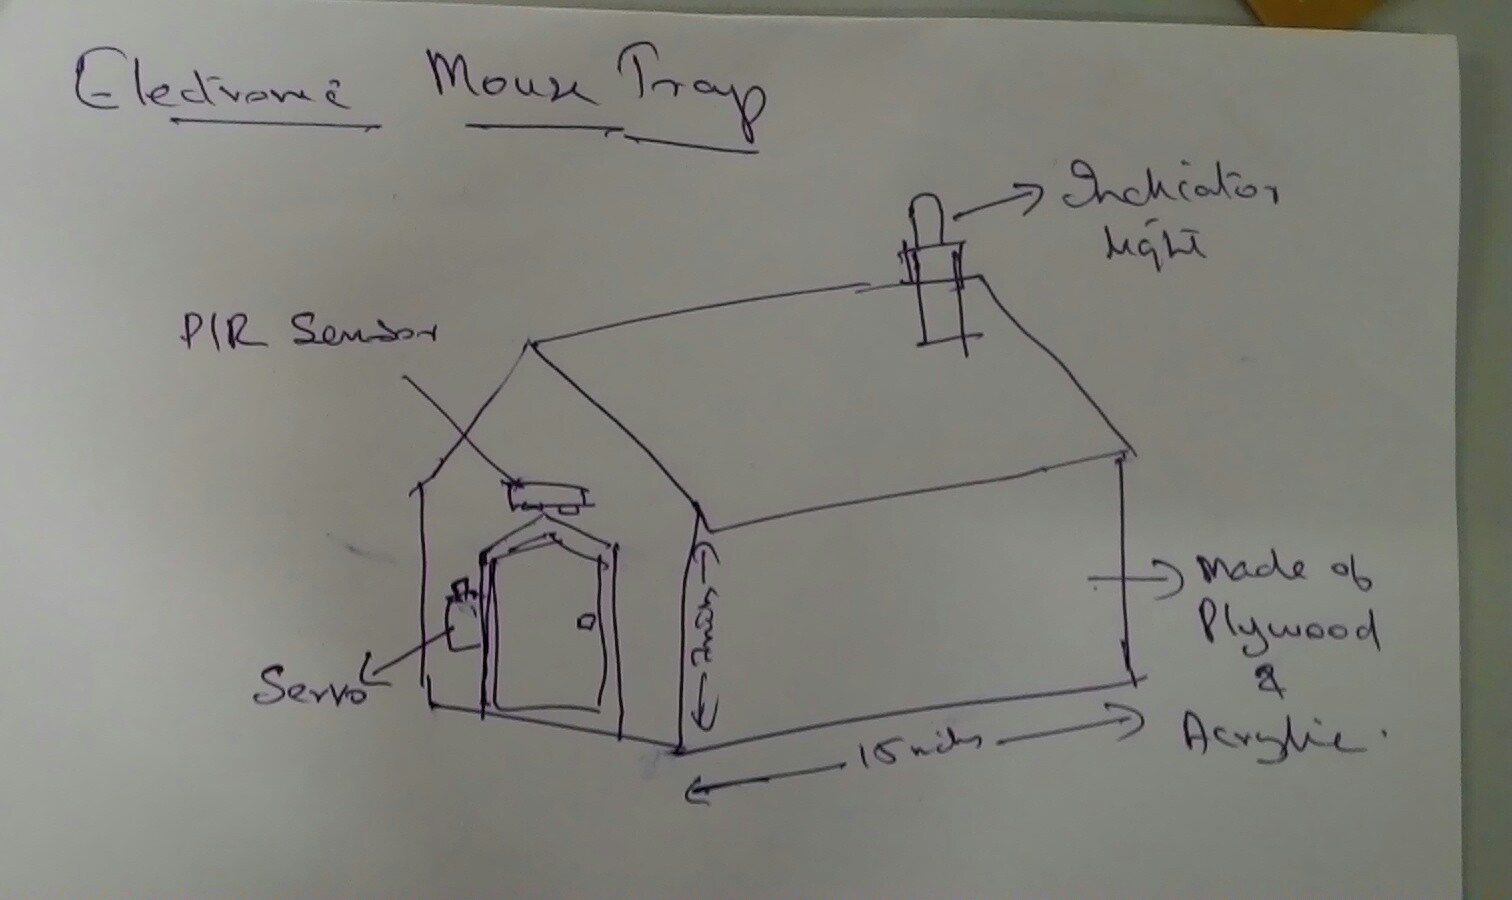 Electronic Mouse Trap
Indicator
light
PIR Sensor
Made of
Plywood
&
Acrylic.
Servo
7 inch
15 inch